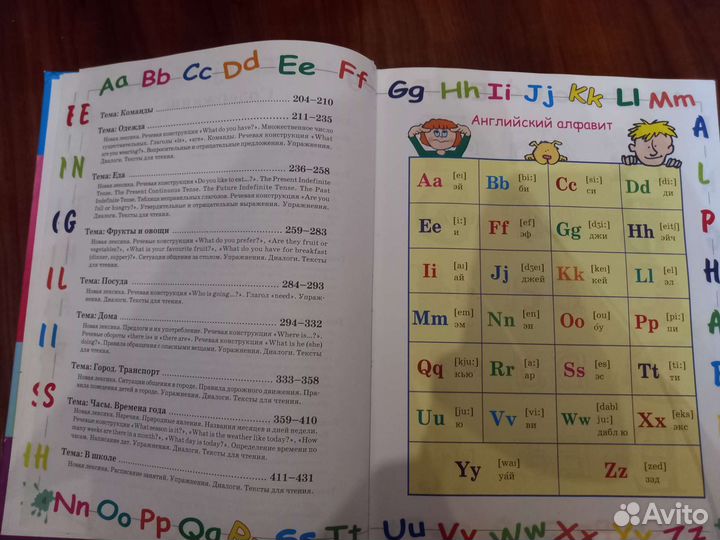 Aa Bb Cc Dd Ee Ff
Тема: Команды
204–210
Тема: Одежда
211–235
Новая лексика. Речевая конструкция «What do you have?». Множественное число
существительных. Глаголы «is», «are». Команды. Речевая конструкция «What
are you wearing?». Вопросительные и отрицательные предложения. Упражнения.
Диалоги. Тексты для чтения.
Тема: Еда
236–258
Новая лексика. Речевая конструкция «Do you like to eat...?». The Present Indefinite
Tense. The Present Continuous Tense. The Future Indefinite Tense. The Past
Indefinite Tense. Таблица неправильных глаголов. Речевая конструкция «Are you
full or hungry?». Утвердительные и отрицательные выражения. Упражнения.
Диалоги. Тексты для чтения.
Тема: Фрукты и овощи
259–283
Новая лексика. Речевые конструкции «What do you prefer?», «Are they fruit or
vegetables?», «What is your favourite fruit?», «What do you have for breakfast
(dinner, supper)?». Ситуация общения за столом. Упражнения. Диалоги. Тексты
для чтения.
Тема: Посуда
284–293
Новая лексика. Речевая конструкция «Who is going...?». Глагол «need». Упраж-
нения. Диалоги. Тексты для чтения.
Тема: Дома
294–332
Новая лексика. Предлоги и их употребление. Речевая конструкция «Where is...?».
Речевые обороты «there is» и «there are». Речевая конструкция «What is he (she)
doing?». Правила обращения с опасными вещами. Упражнения. Диалоги. Тексты
для чтения.
Тема: Город. Транспорт
333–358
Новая лексика. Ситуация общения в городе. Правила дорожного движения. Пра-
вила поведения детей в городе. Упражнения. Диалоги. Тексты для чтения.
Тема: Часы. Времена года
359–410
Новая лексика. Наречия. Природные явления. Названия месяцев и дней недели.
Речевые конструкции «What season is it?», «What is the weather like today?», «How
many weeks are there in a month?», «What day is today?». Определение времени по
часам. Написание дат. Упражнения. Диалоги. Тексты для чтения.
Тема: В школе
411–431
Новая лексика. Расписание занятий. Упражнения. Диалоги. Тексты для чтения.
Nn Oo Pp Qq
Gg Hh Ii Jj Kk Ll Mm
Английский алфавит
Aa [eı] эй Bb [bi:] би Cc [si:] си Dd [di:] ди
Ee [i:] и Ff [ef] эф Gg [dʒi:] джи Hh [eitʃ] эйч
Ii [aı] ай Jj [dʒeı] джей Kk [keı] кей Ll [el] эл
Mm [em] эм Nn [en] эн Oo [ou] оу Pp [pi:] пи
Qq [kju:] кью Rr [a:] ар Ss [es] эс Tt [ti:] ти
Uu [ju:] ю Vv [vi:] ви Ww [dabl ju:] дабл ю Xx [eks] экс
Yy [waı] уай Zz [zed] зэд
Uu Vv Ww Xx Yy Zz
Avito